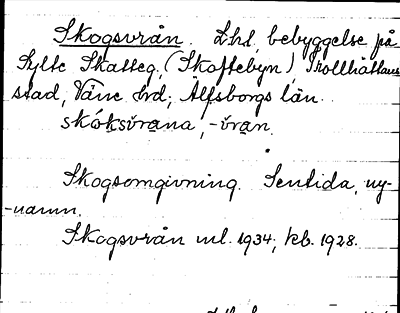 Skogsvrån. Lht, bebyggelse på
Sylte Skatteg, (Skoftebyn) Trollhättans
stad, Väne hrd; Älfsborgs län.
skóksvrana, -vran.
Skogsomgivning. Sentida, ny-
-namn.
Skogsvrån ml. 1934; kb. 1928.